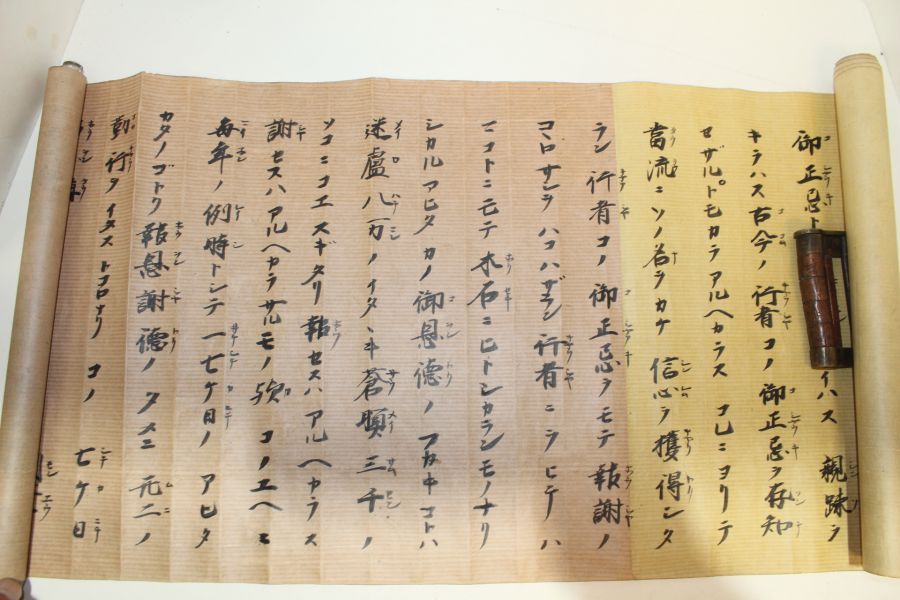 御正忌ト イハス 親疎ヲ
キラハス 古今ノ 行者 コノ 御正忌ヲ 存知
セザルトモカラ アルヘカラス コレニヨリテ
當流ニ ソノ名ヲ カケ 信心ヲ 獲得シタ
ラン 行者 コノ 御正忌ヲ モテ 報謝ノ
コヽロザシヲ ハコハザラン 行者ニヲヒテハ
マコトニモテ 木石ニ ヒトシカランモノナリ
シカルアヒタ カノ 御恩德ノ フカキコトハ
迷盧八万ノ イタヽキ 蒼溟三千ノ
ソコニ コエスギタリ 報セスハ アルヘカラス
謝セスハ アルヘカラサルモノ歟 コノユヘニ
毎年ノ 例時トシテ 一七ケ日ノ アヒタ
カタノゴトク 報恩謝德ノ タメニ 无二ノ
勤行ヲ イタストコロナリ コノ
七ケ日